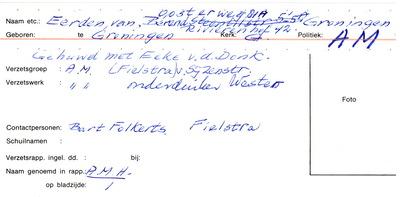 oosterweg 81A
Naam etc.: Eerden van, Berend 5,5ª Groningen
rivierenhof 42.
Geboren: te Groningen Kerk: G Politiek: AM
Gehuwd met Eeke v.d. Donk.
Verzetsgroep : A.M. (Fielstra) v. Sijzenstr.
Verzetswerk : " " onderduiker Westen
Foto
Contactpersonen: Bart Folkerts Fielstra
Schuilnamen :
Verzetsrapp. ingel. dd. : bij:
Naam genoemd in rapp.: A.M.H.
op bladzijde: 1